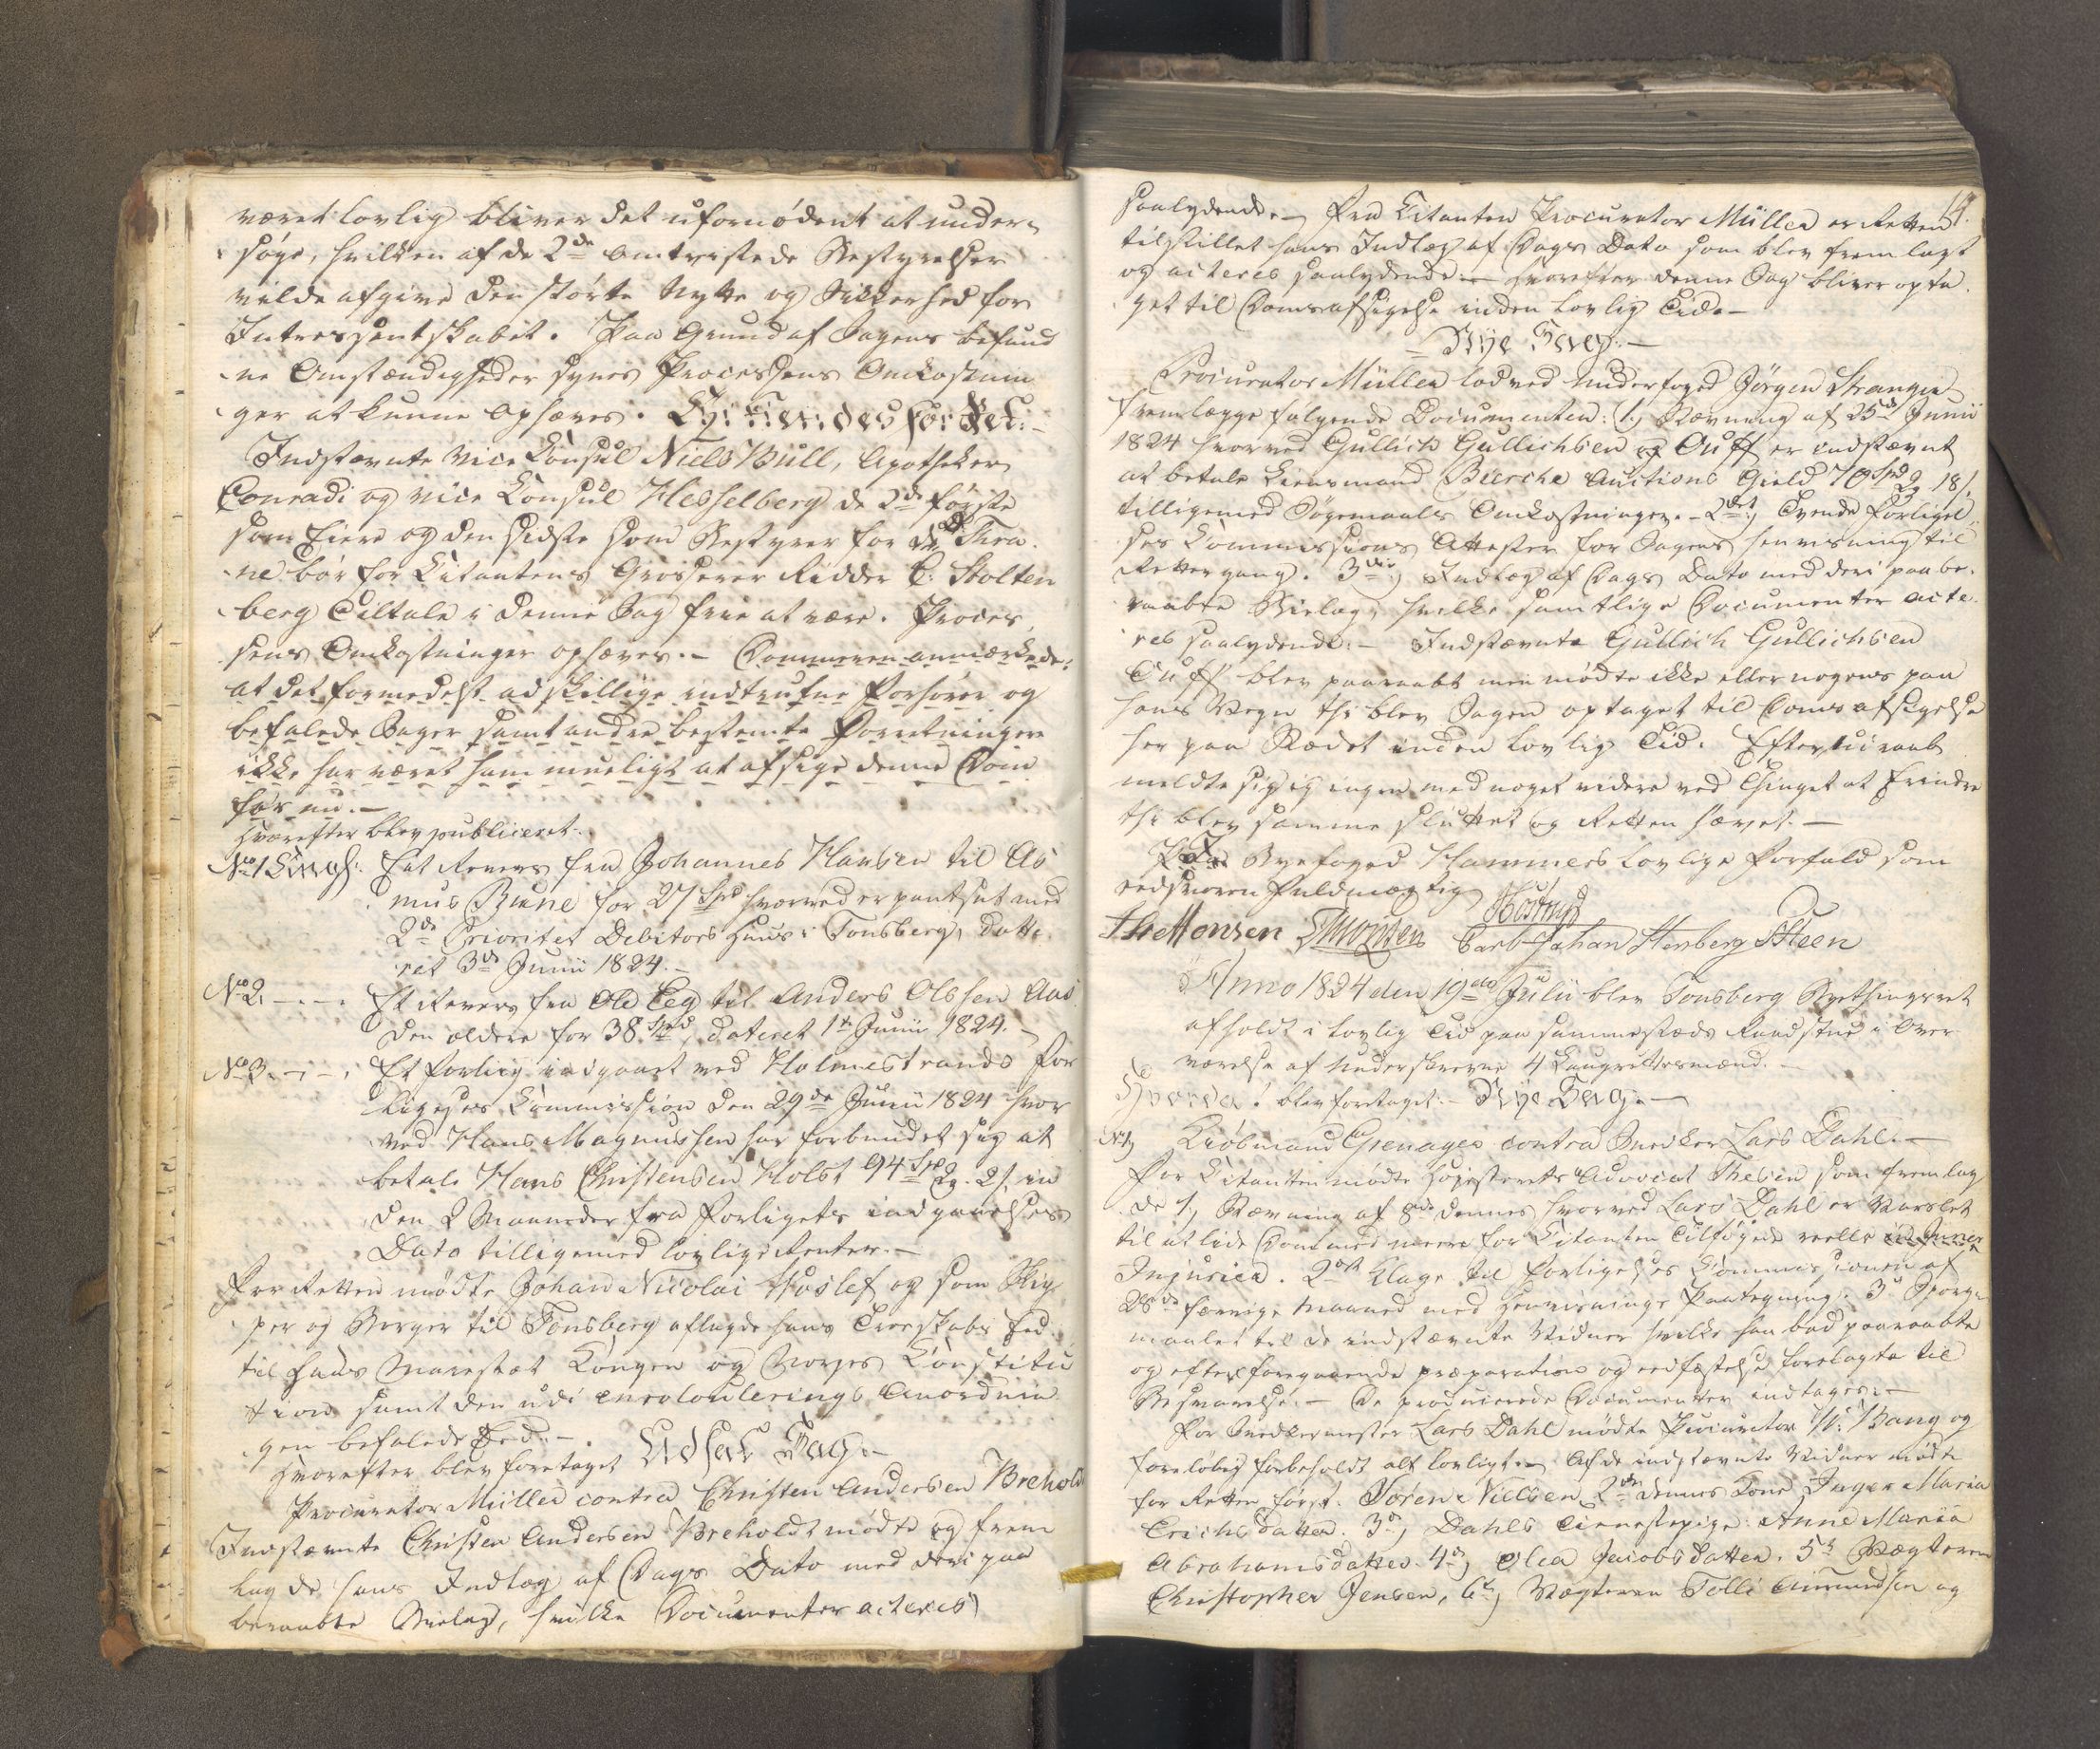 været lovlig bliver det ufornödent at under-
söge, hvilken af de 2de omtvistede Bestyrelser
vilde afgive den störste Nytte og Sikkerhed for
Interessentskabet. Paa Grund af Sagens befund
ne Omstændigheder synes Processens Omkostnin
ger at kunne ophæves. Thi Kiendes for Ret:-
Indstævnte Vice Consul Niels Bull, Apotheker
Conradi og Vice Consul Hesselberg de 2de förste
som Eiere og den sidste som Bestyrer for
ne bör for Citantens Grosserer Ridder C. Stolten
berg Tiltale i denne Sag frie at være. Proces
sens Omkostninger ophæves.- Dommeren anmærkede:
at det formedelst adskillige indtrufne Forhörer og
befalede Sager samt andre bestemte Forretninger
ikke har været ham mueligt at afsige denne Dom
för nu.-
Hvorefter blev publiceret:
No 1 Tingl: Eet Revers fra Johannes Hansen til As
mus Bune for 27 Spd hvorved er pantsat med
2de Prioritet Debitors Huus i Tonsberg, datte
ret 3de Junii 1824.-
No 2. -.-. Et Revers fra Ole Eeg til Anders Olssen Aas
den ældere for 38 Spd, dateret 1te Junii 1824.-
No 3. -.-. Et Forlig indgaaet ved Holmestrands For
ligelses Commission den 29de Junii 1824 hvor
ved Hans Magnussen har forbundet sig at
betale Hans Christensen Holst 94 Spd 2 . 2 s. in
den 2 Maaneder fra Forligets indgaaelses
Dato tilligemed lovlige Renter.-
For Retten mödte Johan Nicolai Huslef og som Skip
per og Borger til Tonsberg aflagde hans Troeskabs Eed
til Hans Majestæt Kongen og Norges Constitu
tion samt den udi enroulerings Anordnin
gen befalede Eed.-
Hvorefter blev foretaget Udsat Sag.-
Procurator Müller contra Christen Andersen Breholdt
Indstævnte Christen Andersen Breholdt mödte og frem
lagde hans Indlæg af Dags Dato med deri paa
beraabte Bielag, hvilke Documenter acteres
14.
saalydende.- Fra Citanten Procurator Müller er Retten
tilstillet hans Indlæg af Dags Dato som blev fremlagt
og acteres saalydende.- Hvorefter denne Sag bliver opta
get til Domsafsigelse inden lovlig Tid.-
- Nye Sag.-
Procurator Müller lod ved Underfoged Jörgen Stranger
fremlægge fölgende Documenter: 1) Stævning af 25de Junii
1824 hvorved Gullich Gullichsen Tuff er indstævnt
at betale Lensmand Bierche Auctions Gield 70 Spd 2 18 s.
tilligemed Sögemaals Omkostninger.- 2det) Tvende Forligel
ses Commissions Attester for Sagens henvisning til
Rettergang. 3die) Indlæg af Dags Dato med deri paabe
raabte Bielag, hvilke samtlige Documenter acte
res saalydende:- Indstævnte Gullich Gullichsen
Tuff blev paaraabt men mödte ikke eller nogen paa
hans Vegne thi blev Sagen optaget til Doms afsigelse
her paa Stædet inden lovlig Tid. Efter udraab
meldte sig ey ingen med noget videre ved Thinget at erindre
thi blev samme sluttet og Retten hævet.-
For Byefoged Hammers lovlige Forfald som
eedsvoren Fuldmægtig
Thr Monsen Carl Johan Stenberg S Steen
Anno 1824 den 19de Julii blev Tonsberg Byethingsret
afholdt i lovlig Tid paa sammesteds Raadstue i Over
værelse af Underskrevne 4 Laugrettesmænd.-
Hvorda: blev foretaget:- Nye Sag.-
No 1) Kiöbmand Grenager contra Snedker Lars Dahl.-
For Citanten mödte Höiesterets Advocat Thesen som fremlag
de 1) Stævning af 8de dennes hvorved Lars Dahl er Varslet
til at lide Dom med meere for Citanten Tilföyede reelle
Injurier. 2det Klage til Forligelses Commissionen af
28de forrige Maaned med Henvisnings Paategning. 3de Spörgs
maalet til de indstævnte Vidner hvilke han bad paaraabte
og efter foregaaende præparation og eedfæstelse forelagte til
Besvarelse.- De producerede Documenter indtages:-
For Snedkermester Lars Dahl mödte Procurator N: Bang og
forelöbig forbeholdt alt lovligt.- Af de indstævnte Vidner mödte
for Retten förste. Sören Nielsen 2den dennes Kone Inger Maria
Erichsdatter. 3de) Dahls Tienestepige Anne Maria
Abrahamsdatter. 4de) Olea Jacobsdatter. 5te Vægteren
Christopher Jensen, 6te) Vægteren Tolli Amundsen og